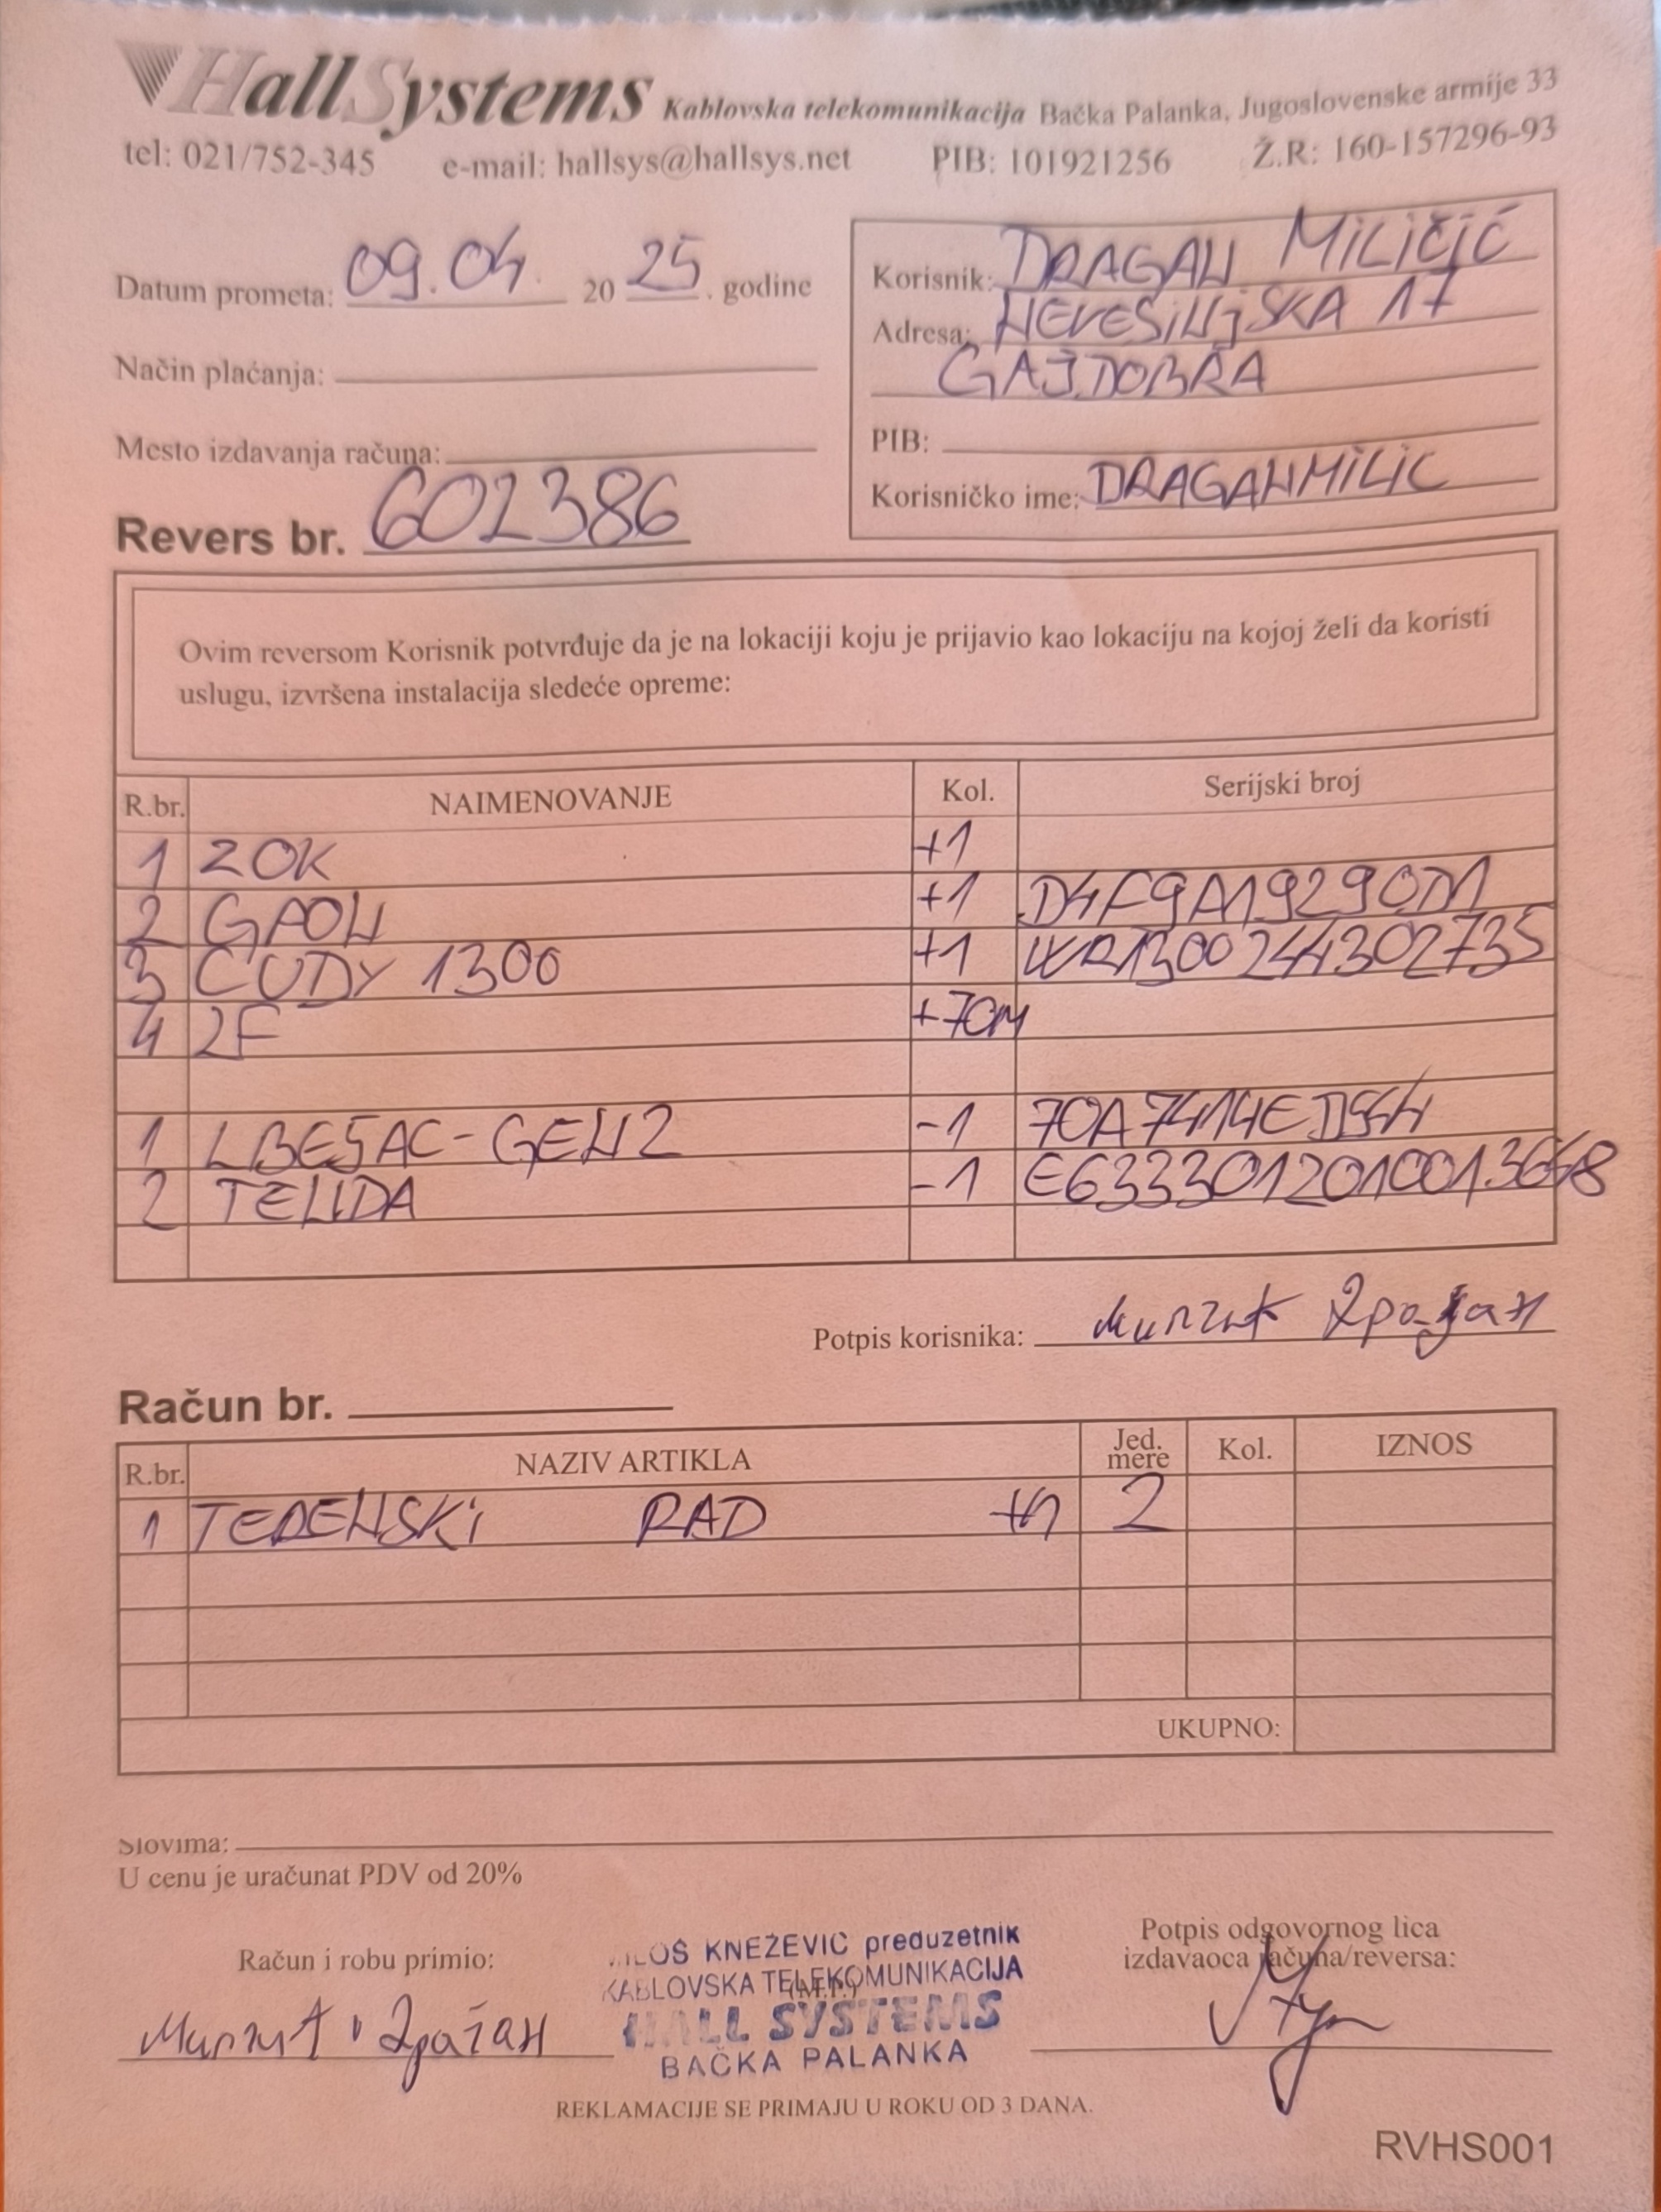 HallSystems Kablovska telekomunikacija Bačka Palanka, Jugoslovenske armije 33
tel: 021/752-345 e-mail: hallsys@hallsys.net PIB: 101921256 Ž.R: 160-157296-93
Datum prometa: 09.04. 20 25. godine
Način plaćanja:
Mesto izdavanja računa:
Revers br. 602386
Korisnik: DRAGAN MILIČIĆ
Adresa: NEVESINJSKA 17
GAJDOBRA
PIB:
Korisničko ime: DRAGANMILIC
Ovim reversom Korisnik potvrđuje da je na lokaciji koju je prijavio kao lokaciju na kojoj želi da koristi
uslugu, izvršena instalacija sledeće opreme:
R.br. NAIMENOVANJE Kol. Serijski broj
1 ZOK +1
2 GPON +1
3 CUDY 1300 +1 WR1300244302735
4 2F +70M
1 LBE5AC-GEN2 -1
2 TENDA -1
Potpis korisnika:
Račun br.
R.br. NAZIV ARTIKLA Jed. mere Kol. IZNOS
1 TERENSKI RAD 2
UKUPNO:
Slovima:
U cenu je uračunat PDV od 20%
Račun i robu primio:
KNEŽEVIĆ preduzetnik
KABLOVSKA TELEKOMUNIKACIJA
(M.P.)
HALL SYSTEMS
BAČKA PALANKA
Potpis odgovornog lica
izdavaoca računa/reversa:
REKLAMACIJE SE PRIMAJU U ROKU OD 3 DANA.
RVHS001